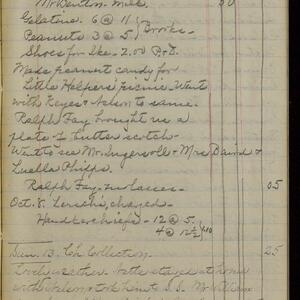 Mr Benton - milk. 50
Gelatine. 6 @ 11
Peanuts 3 @ 5 } Brooks.
Shoes for Ike - 2.00
Made peanut candy for
Little Helpers' picnic. Went
with Keyes + to same.
Ralph Fay brought us a
plate of butter scotch -
Went to see Mr. Ingersoll + Mrs. Baird +
Luella Phipps.
Ralph Fay - molasses. 05
Oct. 8. charged -
Handkerchiefs - 12 @ 5.
4 @ 12½
Sun. 13. Ch. Collection. 25
Lovely weather. stayed at home
with took him to S.S.